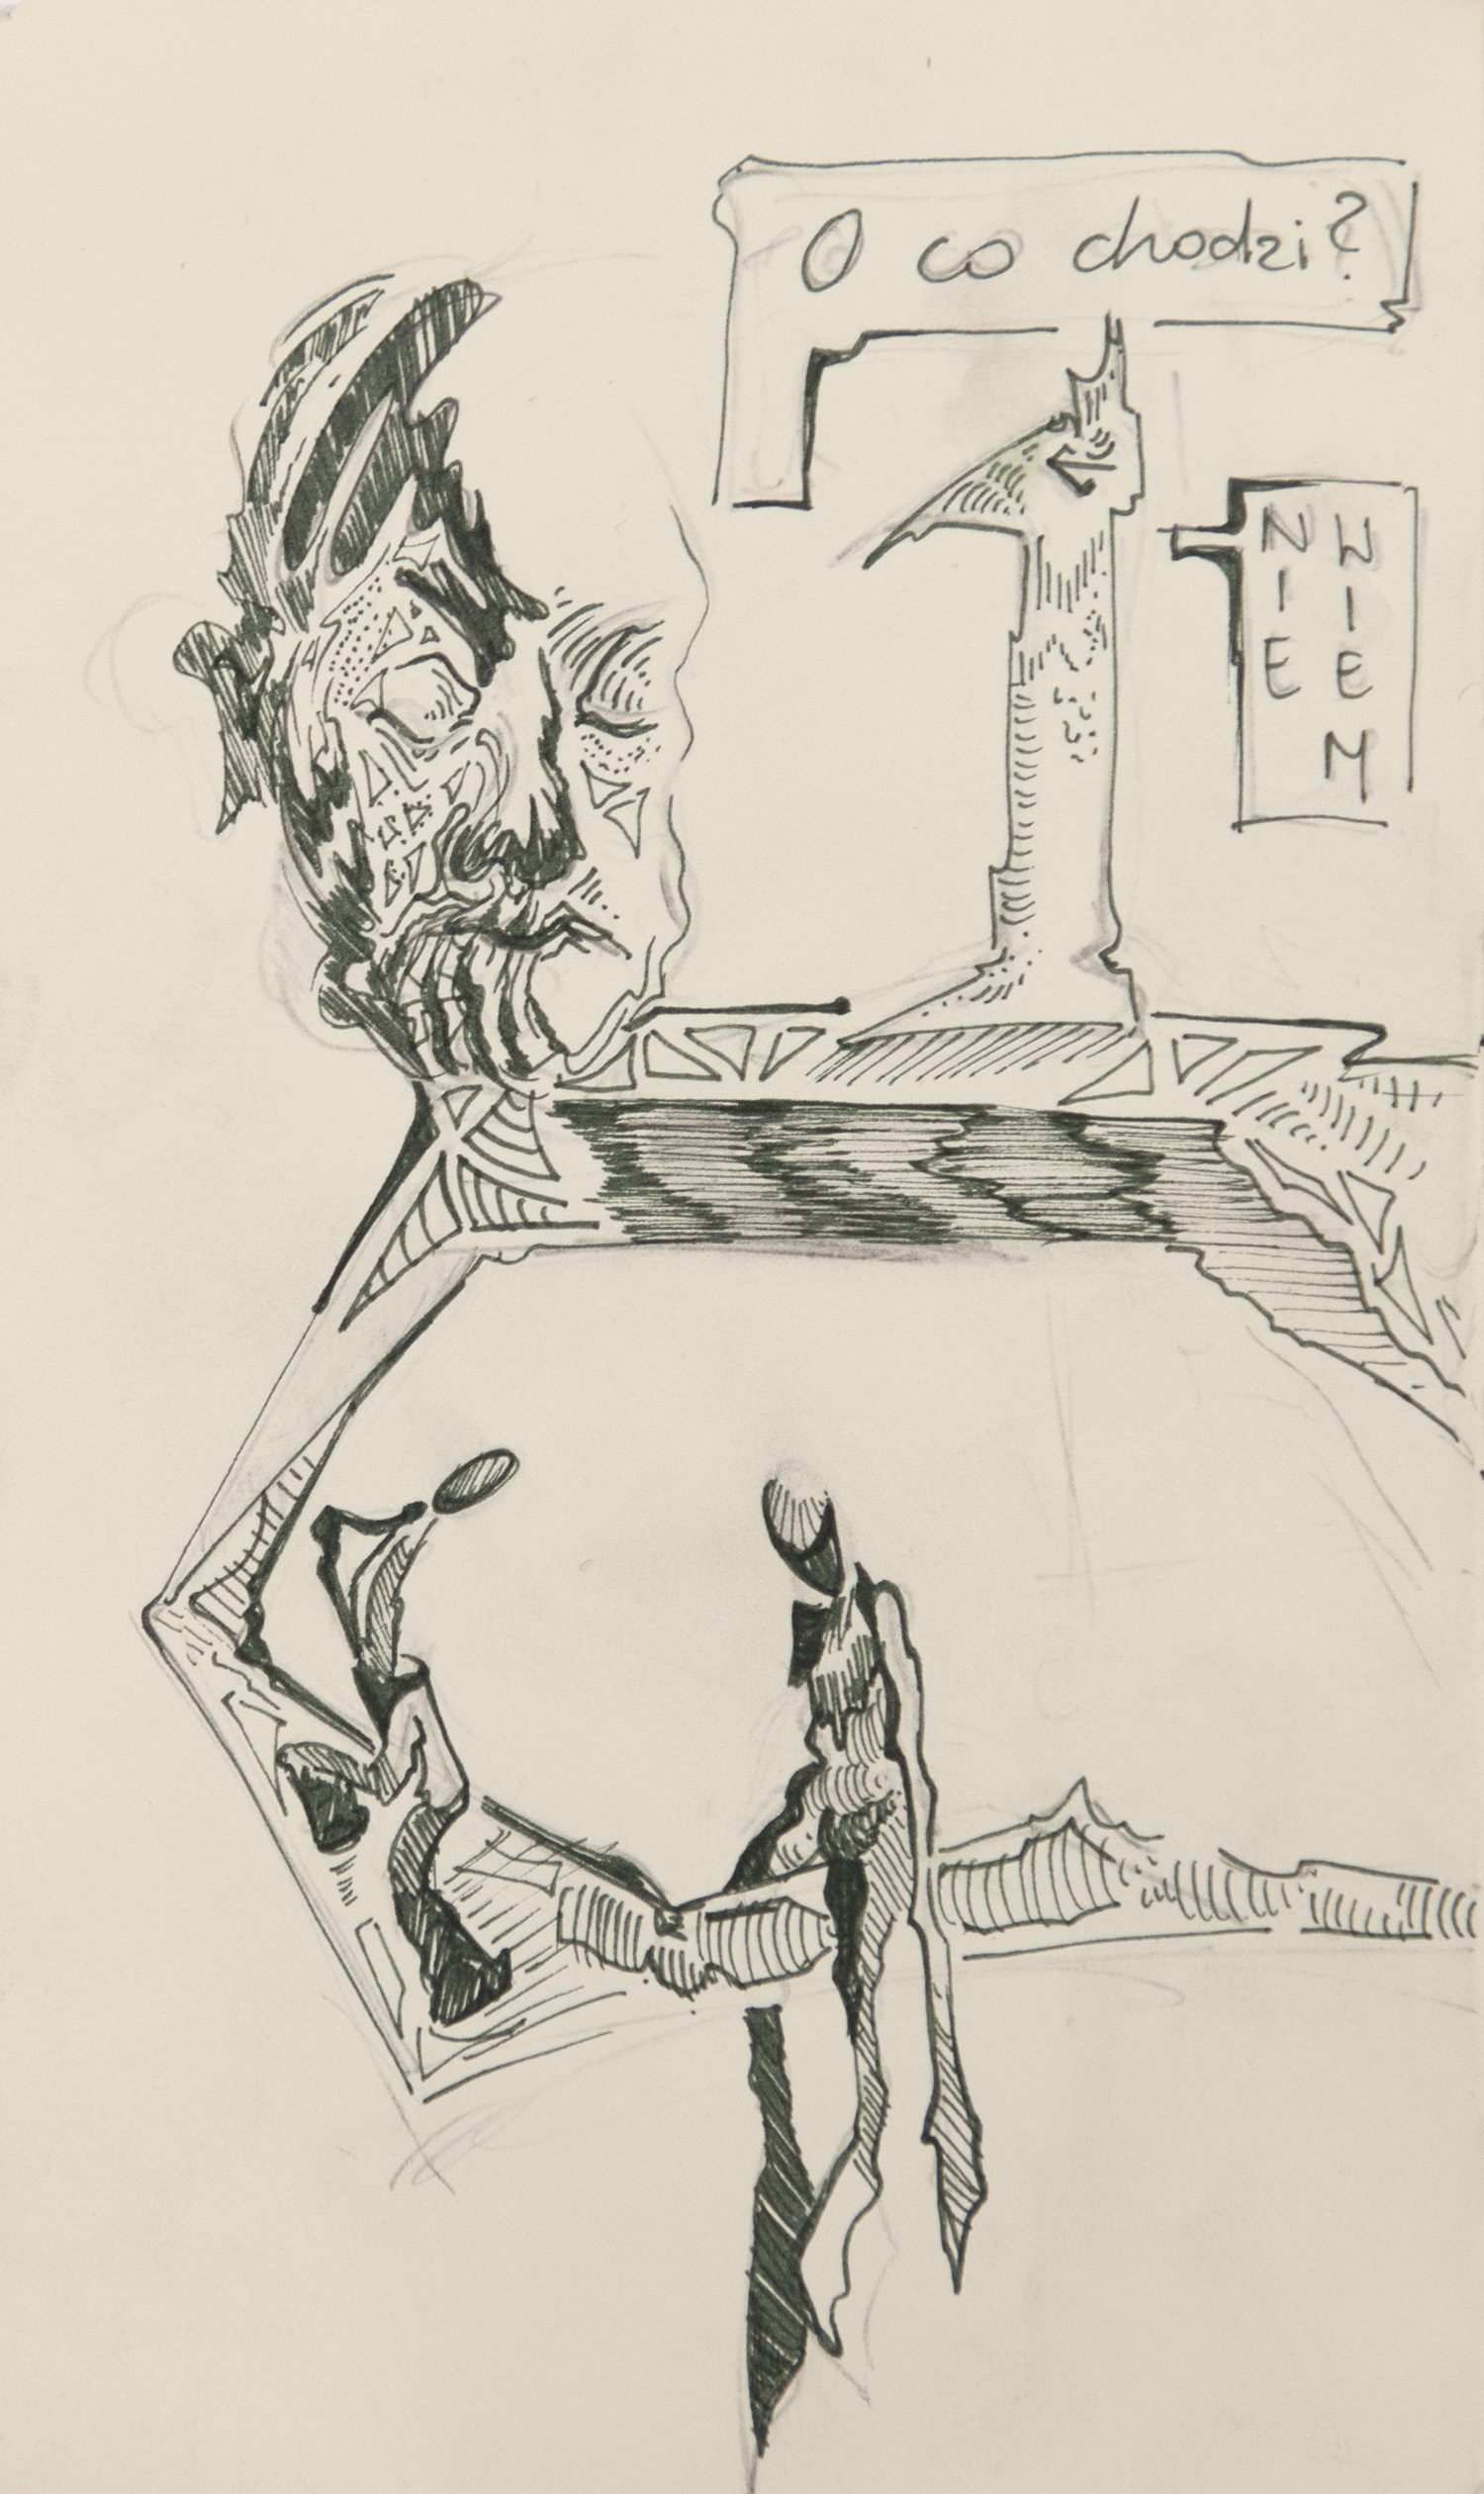 O co chodzi?
NIE
WIEM